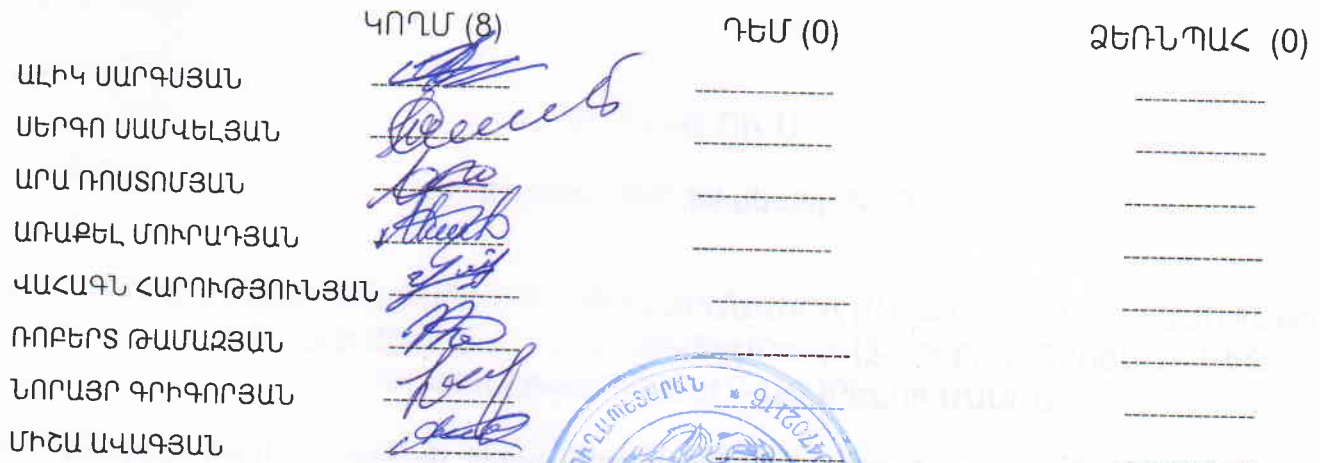 ԿՈՂՄ (8) ԴԵՄ (0) ՁԵՌՆՊԱՀ (0)
ԱԼԻԿ ՍԱՐԳՍՅԱՆ
ՍԵՐԳՈ ՍԱՄՎԵԼՅԱՆ
ԱՐԱ ՌՈՍՏՈՄՅԱՆ
ԱՌԱՔԵԼ ՄՈՒՐԱԴՅԱՆ
ՎԱՀԱԳՆ ՀԱՐՈՒԹՅՈՒՆՅԱՆ
ՌՈԲԵՐՏ ԹԱՄԱԶՅԱՆ
ՆՈՐԱՅՐ ԳՐԻԳՈՐՅԱՆ
ՄԻՇԱ ԱՎԱԳՅԱՆ